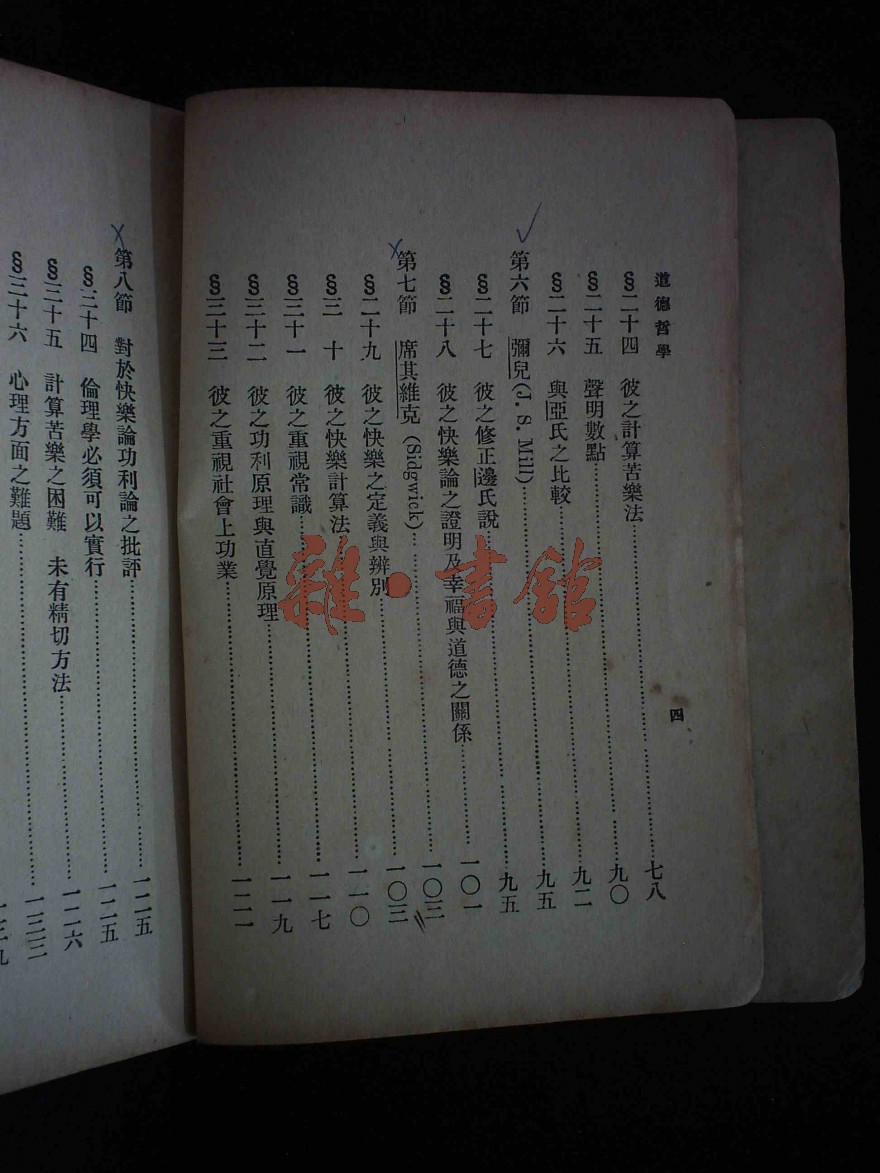 道德哲學
四
§二十四　彼之計算苦樂法……七八
§二十五　聲明數點……九〇
§二十六　與亞氏之比較……九二
第六節　彌兒(J. S. Mill)……九五
§二十七　彼之修正邊氏說……九五
§二十八　彼之快樂論之證明及幸福與道德之關係……一〇一
第七節　席其維克(Sidgwick)……一〇三
§二十九　彼之快樂之定義與辨別……一〇三
§三　十　彼之快樂計算法……一一〇
§三十一　彼之重視常識……一一七
§三十二　彼之功利原理與直覺原理……一一九
§三十三　彼之重視社會上功業……一二一
第八節　對於快樂論功利論之批評……一二五
§三十四　倫理學必須可以實行……一二五
§三十五　計算苦樂之困難　未有精切方法……一二六
§三十六　心理方面之難題……一三三
雜·書館